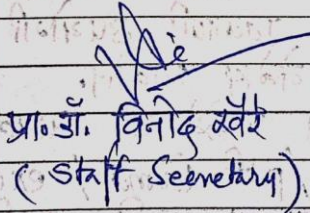 प्रा. डॉ. विनोद खैरे
( Staff Secretary )